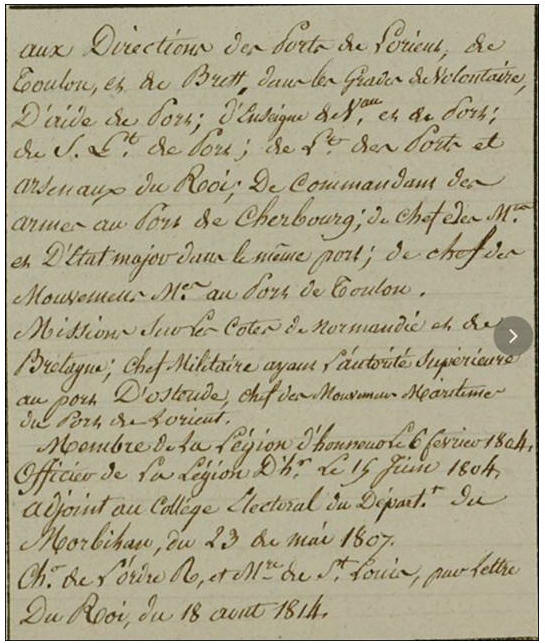 aux Directions des Ports de Lorient, de
Toulon, et de Brest, dans les Grades de Volontaire,
D'aide de Port; d'Enseigne de V.au et de Port;
de S. Lt. de Port; de Lt. des Ports et
arsenaux du Roi; De Commandant des
armes au Port de Cherbourg; de chef des M.
et D'Etat major dans le même port; de chef des
Mouvemens M.es au Port de Toulon.
Missions sur les Cotes de Normandie et de
Bretagne; chef Militaire ayant L'autorité Supérieure
au port D'ostende, chef des Mouvemens Maritimes
du Port de Lorient.
Membre de La Légion d'honneur Le 6 fevrier 1804,
Officier de La Légion D'h.r Le 15 Juin 1804,
adjoint au Collège Electoral du Depart.t du
Morbihan, du 23 de mai 1807.
Ch.r de L'ordre R, et M.re de St. Louis, par Lettre
Du Roi, du 18 aout 1814.